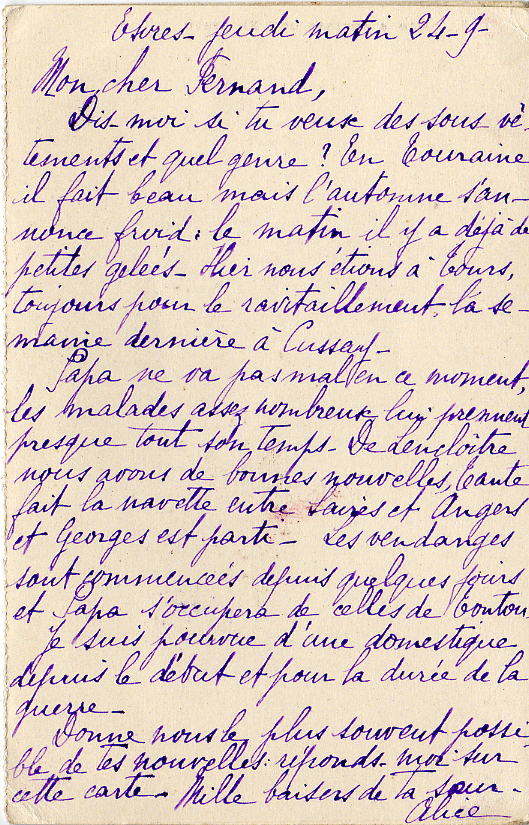 Esvres - jeudi matin 24-9-
Mon cher Fernand,
Dis-moi si tu veux des sous vê-
tements et quel genre ? En Touraine
il fait beau mais l'automne s'an-
nonce froid : le matin il y a déjà de
petites gelées - Hier nous étions à Tours,
toujours pour le ravitaillement, la se-
maine dernière à Cussay -
Papa ne va pas mal en ce moment,
les malades assez nombreux lui prennent
presque tout son temps - De Lencloître
nous avons de bonnes nouvelles, tante
fait la navette entre Saires et Angers
et Georges est parti - Les vendanges
sont commencées depuis quelques jours
et Papa s'occupera de celles de tonton.
Je suis pourvue d'une domestique
depuis le début et pour la durée de la
guerre -
Donne nous le plus souvent possi
ble de tes nouvelles : réponds-moi sur
cette carte - Mille baisers de ta sœur -
Alice